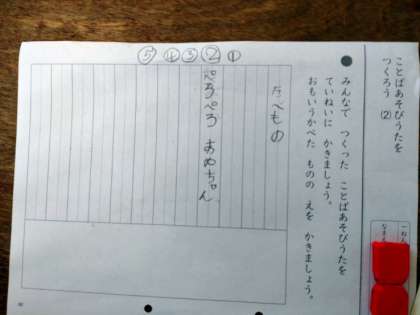 ことばあそびうたを
つくろう ②
みんなで つくった ことばあそびうたを
ていねいに かきましょう。
おもいうかべた ものの えを かきましょう。
① ② ③ ④ ⑤
たべもの
ぺろぺろ あめちゃん